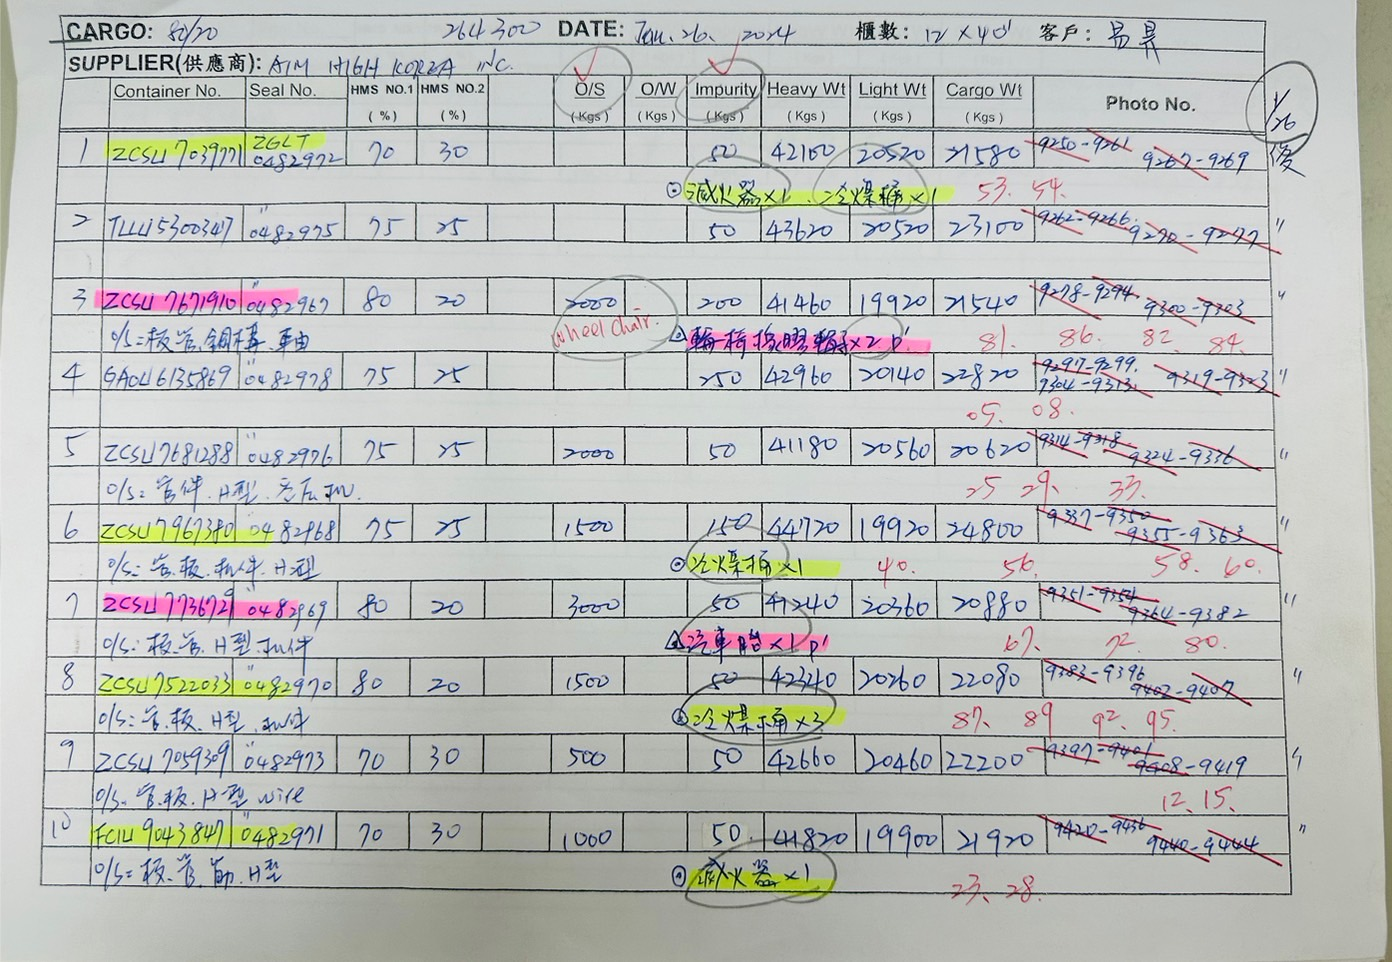 CARGO: 80/20 264300 DATE: Jan. 26. 2024 櫃數: 12 × 40' 客戶: 易昇
SUPPLIER(供應商): AIM HIGH KOREA INC.
Container No. Seal No. HMS NO.1 (%) HMS NO.2 (%) O/S (Kgs) O/W (Kgs) Impurity (Kgs) Heavy Wt (Kgs) Light Wt (Kgs) Cargo Wt (Kgs) Photo No. 1/26 後
1 ZCSU 7039771 ZGLT 0482972 70 30 50 42100 20520 21580 9250-9261 9267-9269
⊙ 滅火器×1 . 冷煤桶×1 53. 54.
2 TLLU5300347 " 0482975 75 25 50 43620 20520 23100 9262-9266 9270-9277 "
3 ZCSU 7671910 " 0482967 80 20 2000 200 41460 19920 21540 9278-9294 9300-9303 "
O/S=板.管.鋼構.車由 wheel chair. 輪椅橡膠輪×2 p' 81. 86. 82. 84.
4 GAOU6135869 " 0482978 75 25 250 42960 20140 22820 9297-9299. 9304-9313. 9319-9323 "
05. 08.
5 ZCSU7681288 " 0482976 75 25 2000 50 41180 20560 20620 9314-9318 9324-9336 "
O/S= 管件.H型. 25 29. 33.
6 ZCSU7967380 " 0482968 75 25 1500 150 44720 19920 24800 9337-9350 9355-9363 "
O/S= 管.板.扣件.H型 ⊙ 冷煤桶×1 40. 56. 58. 60.
7 ZCSU7736729 " 0482969 80 20 3000 50 41240 20360 20880 9351-9354 9364-9382 "
O/S= 板.管.H型.扣件 汽車 ×1 p' 67. 72. 80.
8 ZCSU7522033 " 0482970 80 20 1500 50 42340 20260 22080 9383-9396 9402-9407 "
O/S= 管.板.H型.扣件 冷煤桶×3 87. 89 92. 95.
9 ZCSU7059309 " 0482973 70 30 500 50 42660 20460 22200 9397-9401 9408-9419 "
O/S. 管.板.H型 wire 12. 15.
10 FCIU9043847 " 0482971 70 30 1000 50. 41820 19900 21920 9420-9436 9440-9444 "
O/S= 板.管.筋.H型 ⊙ 滅火器×1 23. 28.